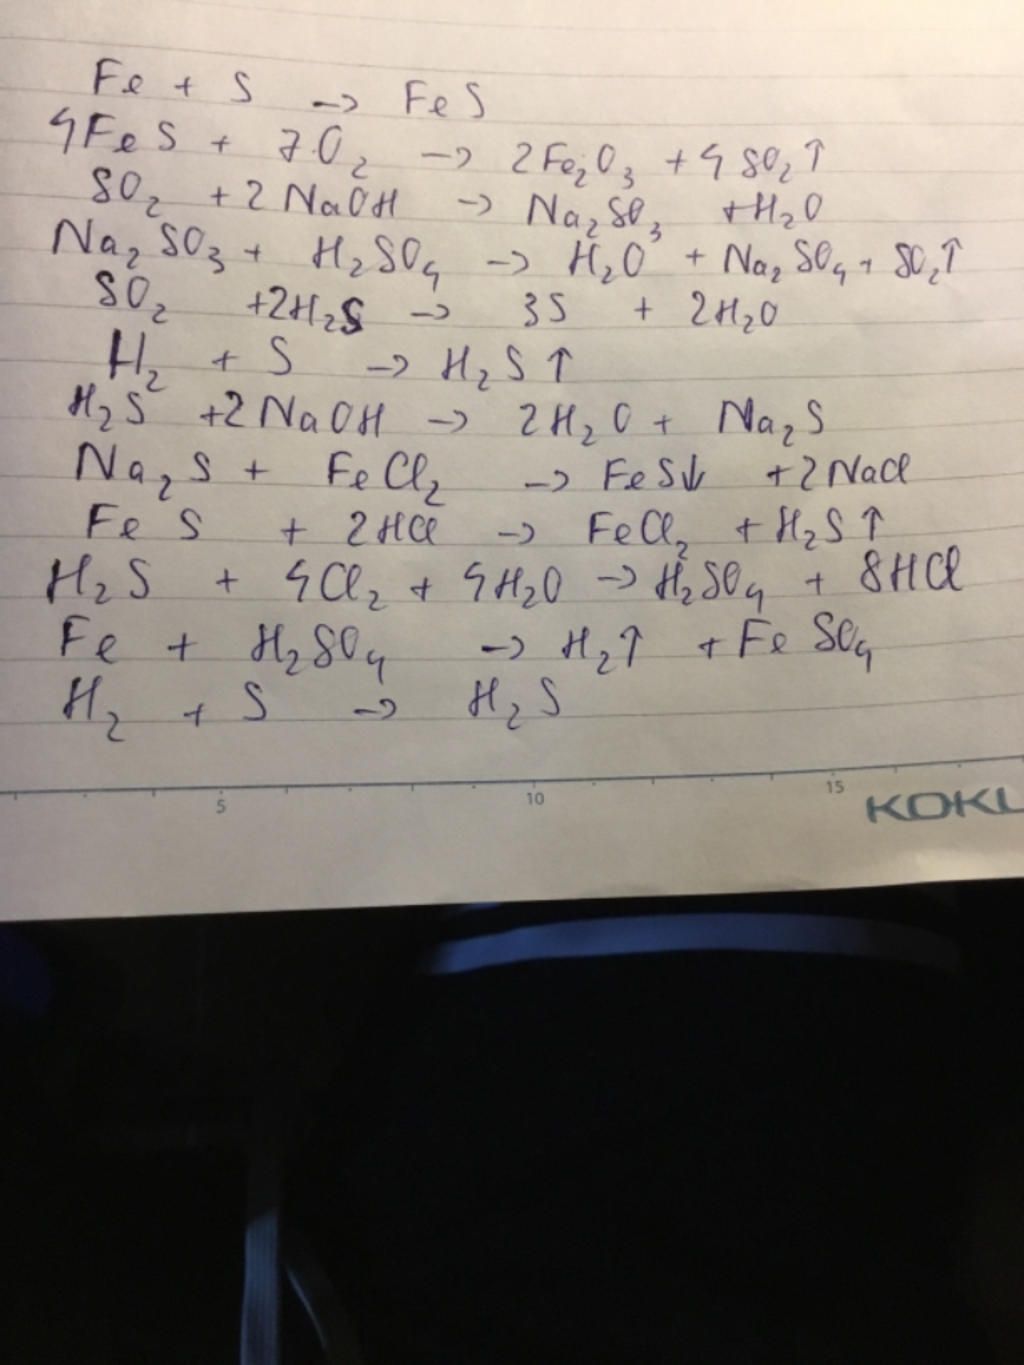 Fe + S → FeS
4FeS + 7O₂ → 2Fe₂O₃ + 4SO₂↑
SO₂ + 2NaOH → Na₂SO₃ + H₂O
Na₂SO₃ + H₂SO₄ → H₂O + Na₂SO₄ + SO₂↑
SO₂ + 2H₂S → 3S + 2H₂O
H₂ + S → H₂S↑
H₂S + 2NaOH → 2H₂O + Na₂S
Na₂S + FeCl₂ → FeS↓ + 2NaCl
FeS + 2HCl → FeCl₂ + H₂S↑
H₂S + 4Cl₂ + 4H₂O → H₂SO₄ + 8HCl
Fe + H₂SO₄ → H₂↑ + FeSO₄
H₂ + S → H₂S
5 10 15